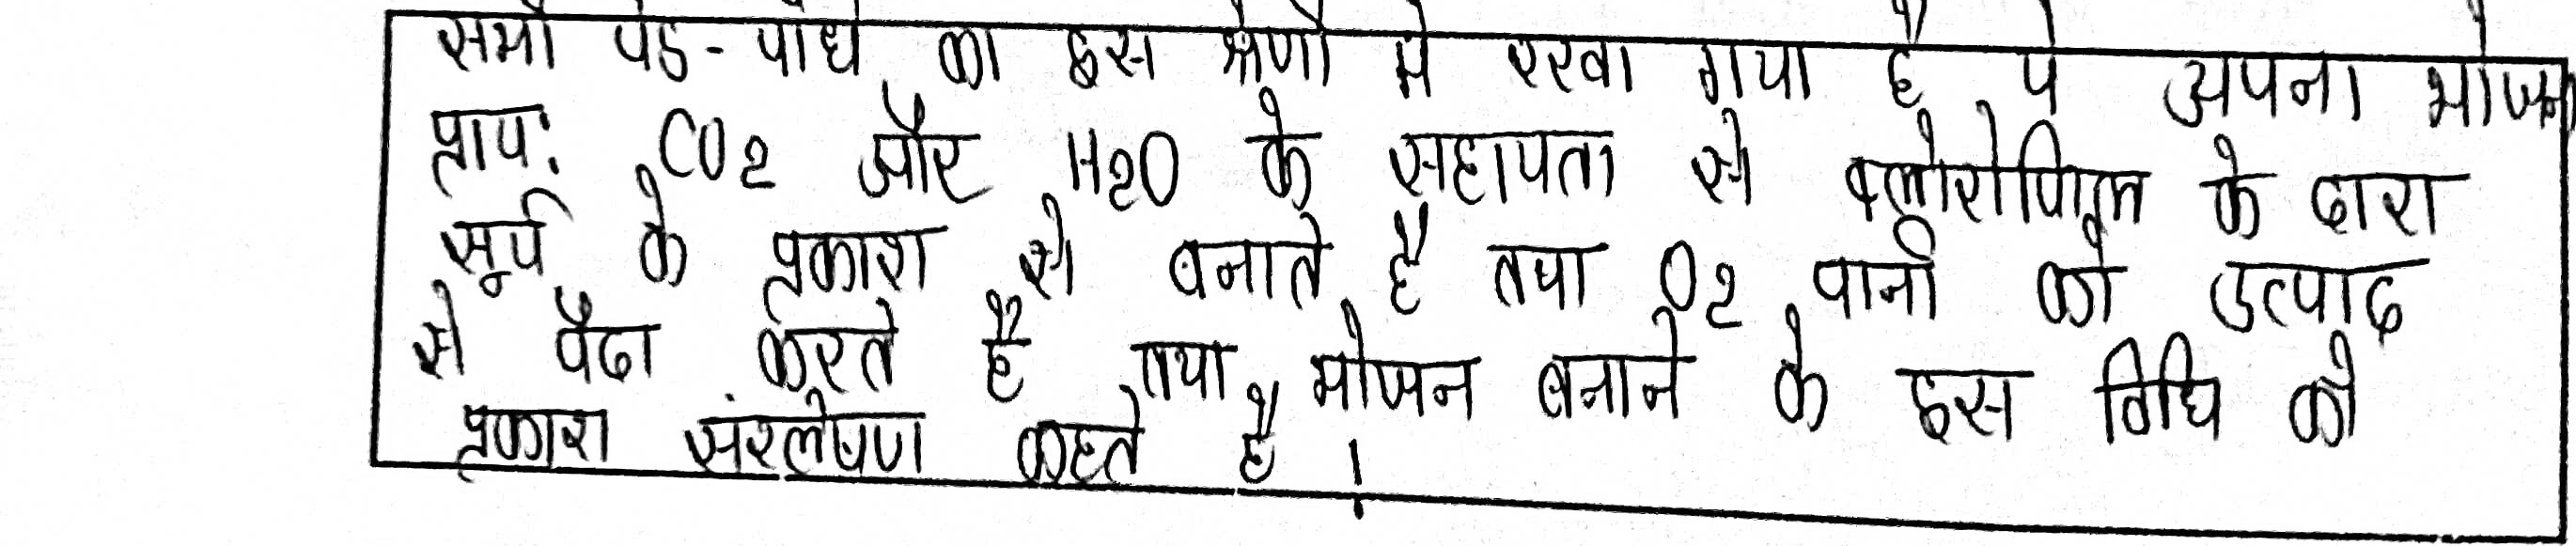 सभी पेड-पौधे को इस श्रेणी मे रखा गया है ये अपना भोजन
प्राय: CO2 और H2O के सहायता से क्लोरोफिल के द्वारा
सूर्य के प्रकाश से बनाते है तथा O2 पानी को उत्पाद
से पैदा करते है तथा भोजन बनाने के इस विधि को
प्रकाश संश्लेषण कहते है।